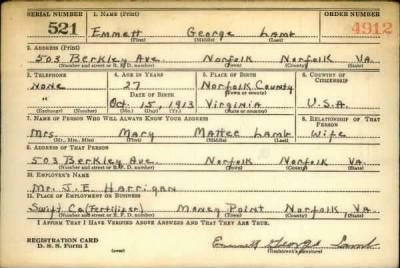 SERIAL NUMBER 1. NAME (Print) ORDER NUMBER
521 Emmett George Lamb 4912
(First) (Middle) (Last)
2. ADDRESS (Print)
503 Berkley Ave. Norfolk Norfolk Va.
(Number and street or R. F. D. number) (Town) (County) (State)
3. TELEPHONE 4. AGE IN YEARS 5. PLACE OF BIRTH 6. COUNTRY OF CITIZENSHIP
None 27 Norfolk County
DATE OF BIRTH (Town or county)
" Oct. 15, 1913 Virginia U.S.A.
(Exchange) (Number) (Mo.) (Day) (Yr.) (State or country)
7. NAME OF PERSON WHO WILL ALWAYS KNOW YOUR ADDRESS 8. RELATIONSHIP OF THAT PERSON
Mrs. Mary Mattee Lamb Wife
(Mr., Mrs., Miss) (First) (Middle) (Last)
9. ADDRESS OF THAT PERSON
503 Berkley Ave. Norfolk Norfolk Va.
(Number and street or R. F. D. number) (Town) (County) (State)
10. EMPLOYER'S NAME
Mr. J. E. Harrigan
11. PLACE OF EMPLOYMENT OR BUSINESS
Swift Co (Fertilizer) Money Point Norfolk Va.
(Number and street or R. F. D. number) (Town) (County) (State)
I AFFIRM THAT I HAVE VERIFIED ABOVE ANSWERS AND THAT THEY ARE TRUE.
REGISTRATION CARD
D. S. S. Form 1 (over) Emmett George Lamb
(Registrant's signature)